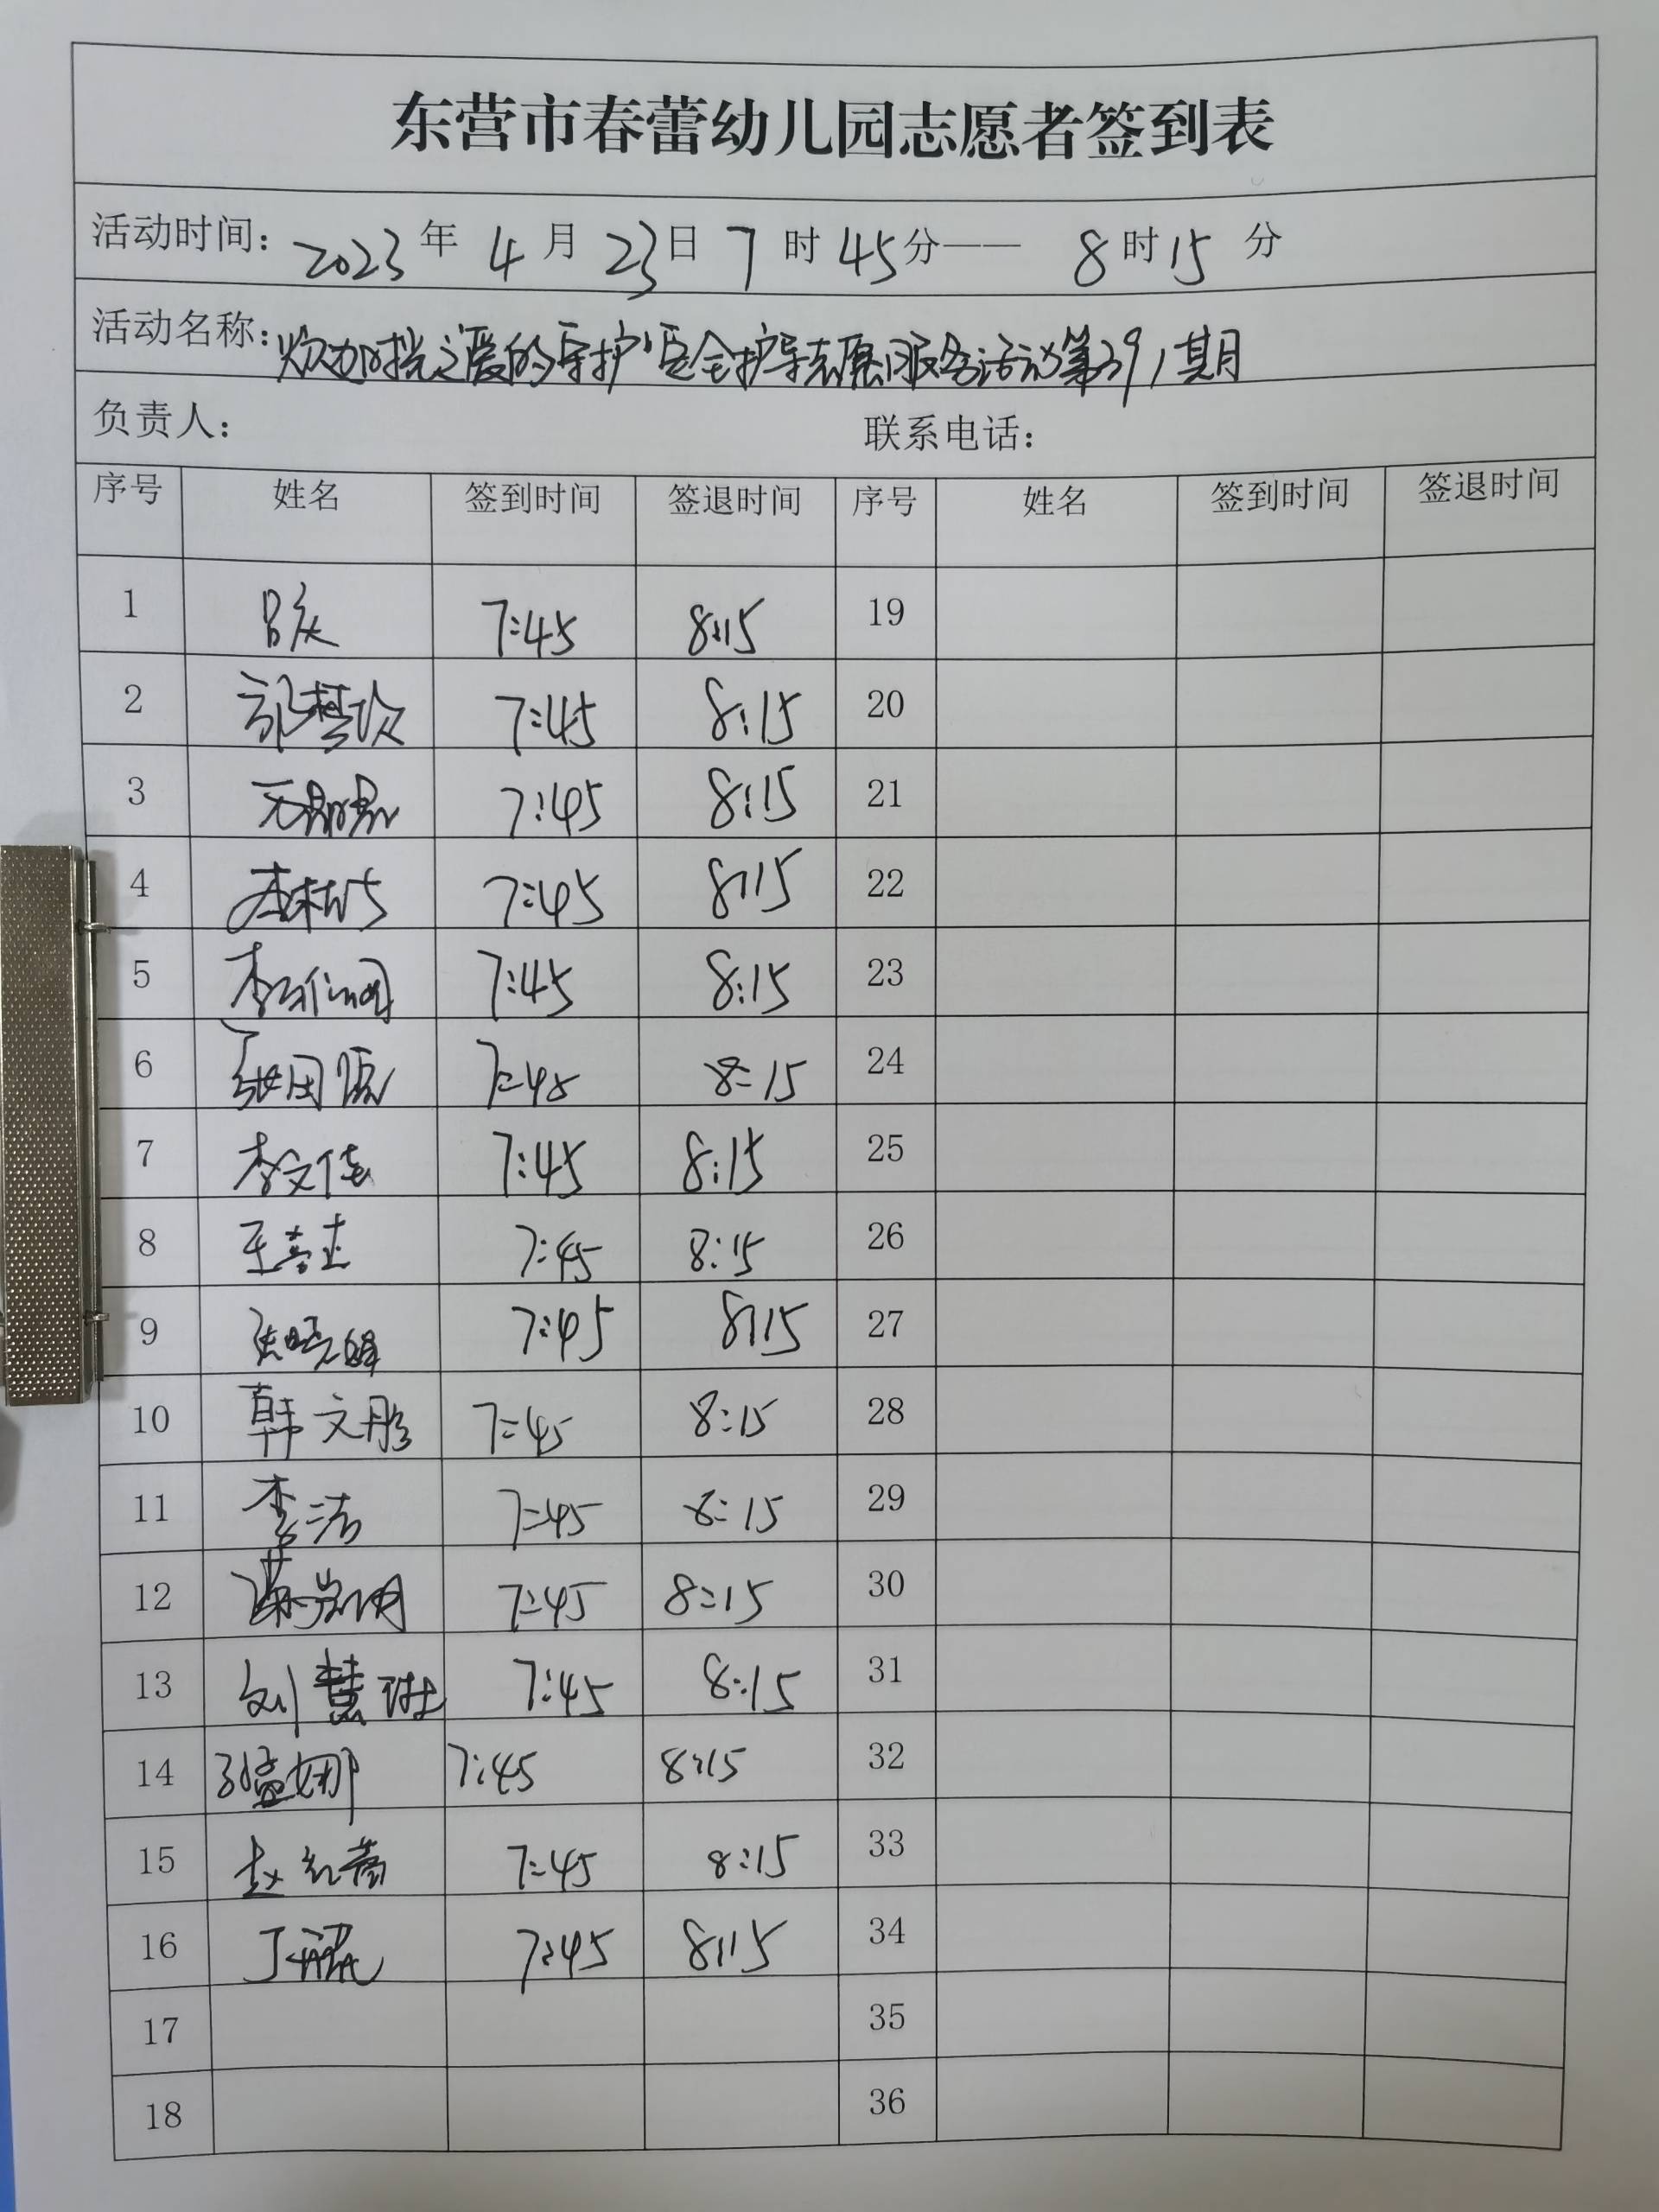 东营市春蕾幼儿园志愿者签到表
活动时间: 2023 年 4 月 23 日 7 时 45 分—— 8 时 15 分
活动名称: 之爱的守护 安全护导志愿服务活动第391期
负责人: 联系电话:
序号 姓名 签到时间 签退时间 序号 姓名 签到时间 签退时间
1 吕庆 7:45 8:15 19
2 7:45 8:15 20
3 7:45 8:15 21
4 7:45 8:15 22
5 7:45 8:15 23
6 7:45 8:15 24
7 李文倩 7:45 8:15 25
8 7:45 8:15 26
9 张晓峰 7:45 8:15 27
10 韩文彤 7:45 8:15 28
11 李洁 7:45 8:15 29
12 7:45 8:15 30
13 刘慧琳 7:45 8:15 31
14 孙孟娜 7:45 8:15 32
15 赵红蕾 7:45 8:15 33
16 7:45 8:15 34
17 35
18 36